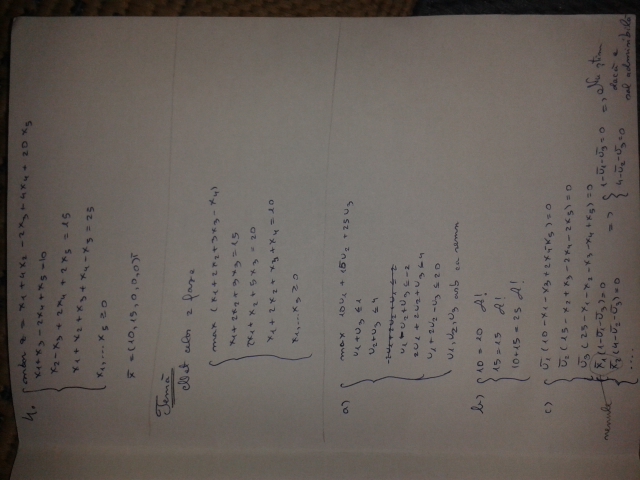 4. min z = x1 + 4x2 - 2x3 + 4x4 + 20x5
x1 + x3 - 2x4 + x5 = 10
x2 - x3 + 2x4 + 2x5 = 15
x1 + x2 + x3 + x4 - x5 = 25
x1, ..., x5 ≥ 0
x̄ = (10, 15, 0, 0, 0)ᵀ
Temă
Met celor 2 faze
max (x1 + 2x2 + 3x3 - x4)
x1 + 2x2 + 3x3 = 15
2x1 + x2 + 5x3 = 20
x1 + 2x2 + x3 + x4 = 10
x1, ..., x5 ≥ 0
a) max 10u1 + 15u2 + 25u3
u1 + u3 ≤ 1
u2 + u3 ≤ 4
u1 - u2 + u3 ≤ -2
-2u1 + 2u2 + u3 ≤ 4
u1 + 2u2 - u3 ≤ 20
u1, u2, u3 arb ca semn
b) 10 = 10 A!
15 = 15 A!
10 + 15 = 25 A!
c) ū1 (10 - x1 - x3 + 2x4 - x5) = 0
ū2 (15 - x2 + x3 - 2x4 - 2x5) = 0
ū3 (25 - x1 - x2 - x3 - x4 + x5) = 0
x̄1 (1 - ū1 - ū3) = 0
x̄2 (4 - ū2 - ū3) = 0
....
=> 1 - ū1 - ū3 = 0
4 - ū2 - ū3 = 0
=> Nu știm
dacă e
sol admisibilă